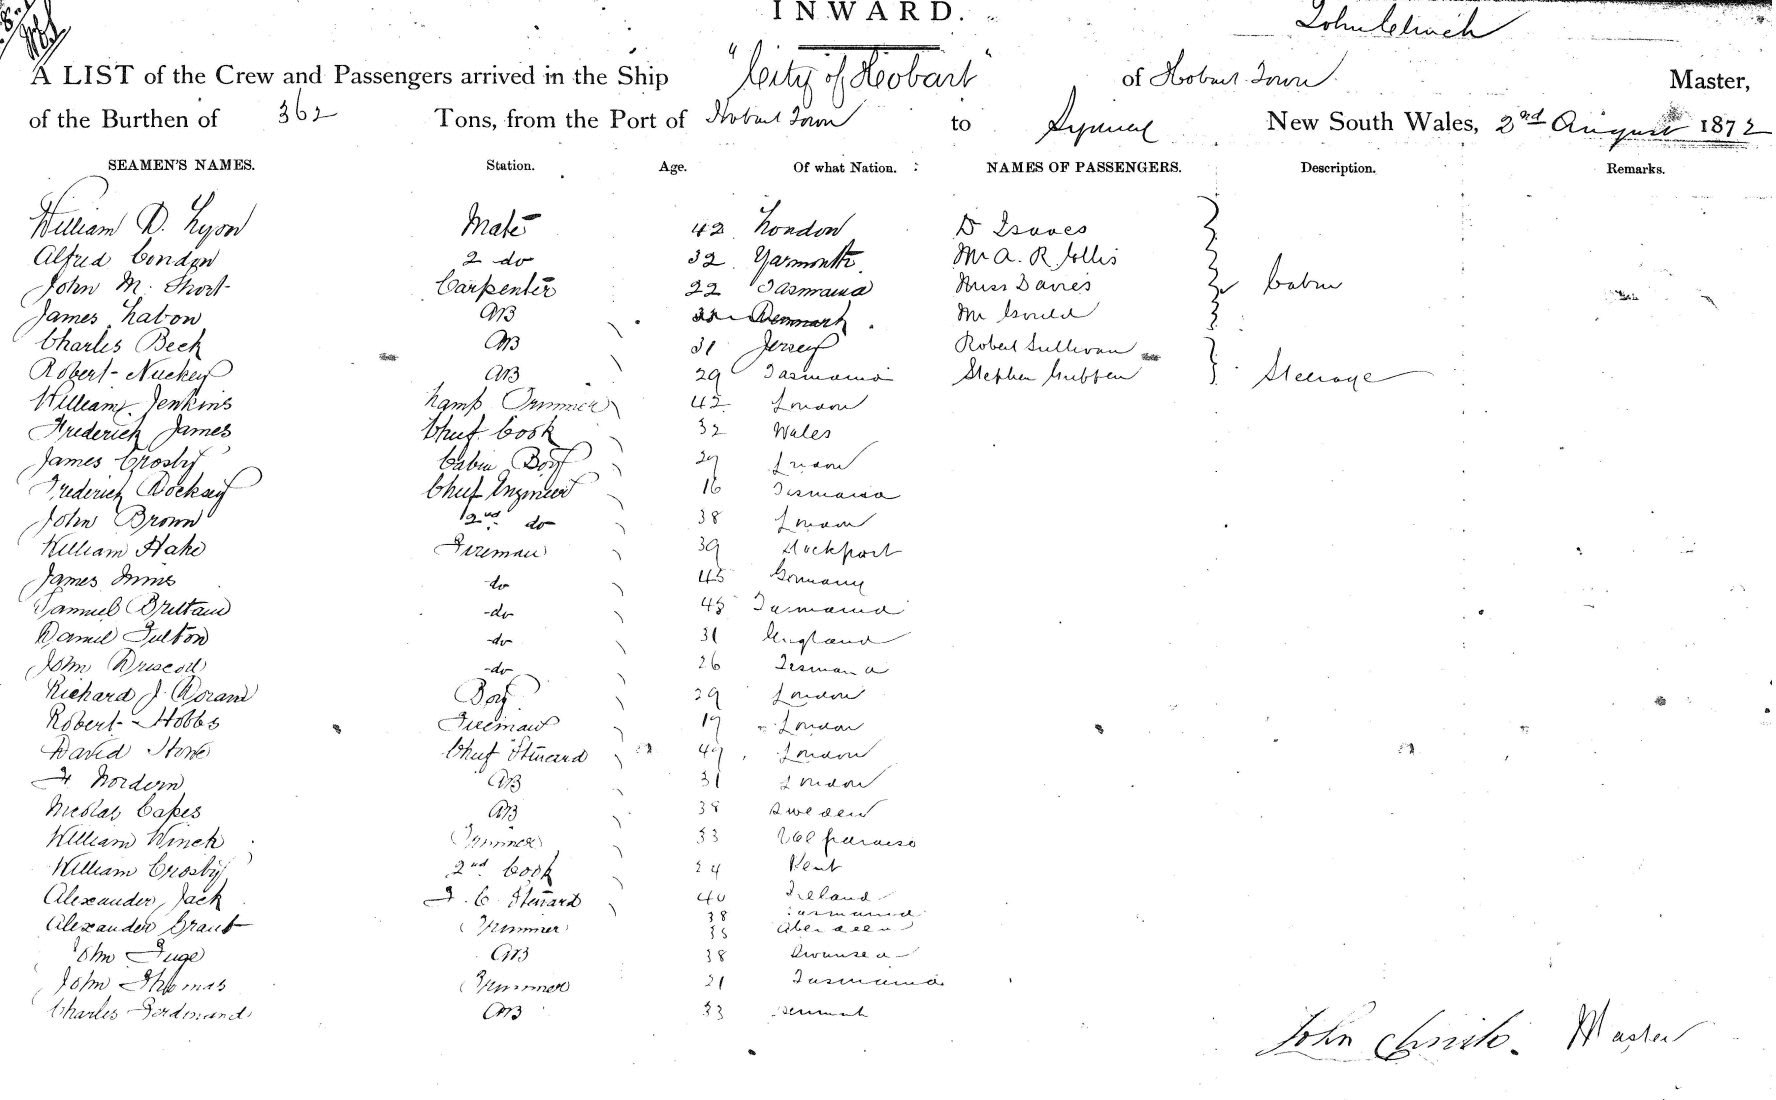 INWARD.
John Clinch
A LIST of the Crew and Passengers arrived in the Ship "City of Hobart" of Hobart Town Master,
of the Burthen of 362 Tons, from the Port of Hobart Town to Sydney New South Wales, 2nd August 1872
SEAMEN'S NAMES. Station. Age. Of what Nation. NAMES OF PASSENGERS. Description. Remarks.
William D. Lyon Mate 42 London Dr Isaacs
Alfred Condon 2 do 32 Yarmouth Mr A. R. Collis
John M. Short Carpenter 22 Tasmania Miss Davies Cabin
James Labon AB Denmark Mr Gould
Charles Beck AB 31 Jersey Robert Sullivan
Robert Nuckey AB 29 Tasmania Stephen Steerage
William Jenkins Lamp Trimmer 42 London
Frederick James Chief Cook 32 Wales
James Crosby Cabin Boy 29 London
Frederick Docksey Chief Engineer 16 Tasmania
John Brown 2nd do 38 London
William Hake Fireman 39 Stockport
James Inins do 45 Germany
Samuel Brittain do 45 Tasmania
Daniel Fulton do 31 England
John Driscoll do 26 Tasmania
Richard J. Doran Boy 29 London
Robert Hobbs Fireman 19 London
David Stone Chief Steward 49 London
F Nordern AB 31 London
Nicolas Capes AB 38 Sweden
William Winch Trimmer 33 Valparaiso
William Crosby 2nd Cook 24 Kent
Alexander Jack F. C. Steward 40 Ireland
38 Tasmania
Alexander Grant Trimmer 35 Aberdeen
John Fuge AB 38 Swansea
John Thomas Trimmer 21 Tasmania
Charles Ferdinand AB 33 Denmark
John Clinch. Master